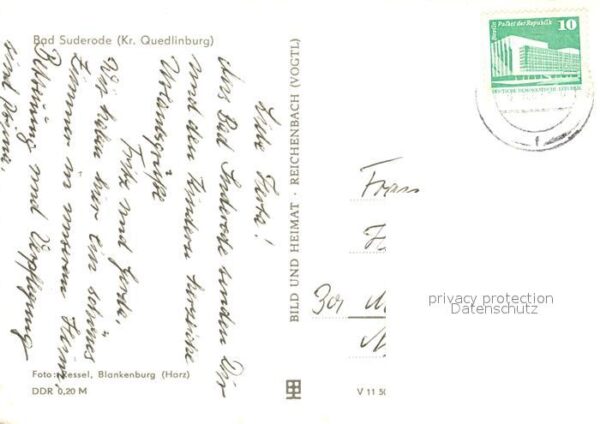 Bad Suderode (Kr. Quedlinburg)
Liebe Herta!
Aus Bad Suderode senden Dir
und den Kindern herzliche
Urlaubsgrüße
Fritz und Gerda.
Wir haben hier ein schönes
Zimmer in unserem Heim.
Betreuung und Verpflegung
sind prima.
Foto: Kessel, Blankenburg (Harz)
DDR 0,20 M
BILD UND HEIMAT · REICHENBACH (VOGTL)
V 11 50
Berlin Palast der Republik 10
DEUTSCHE DEMOKRATISCHE REPUBLIK
Frau
privacy protection
Datenschutz